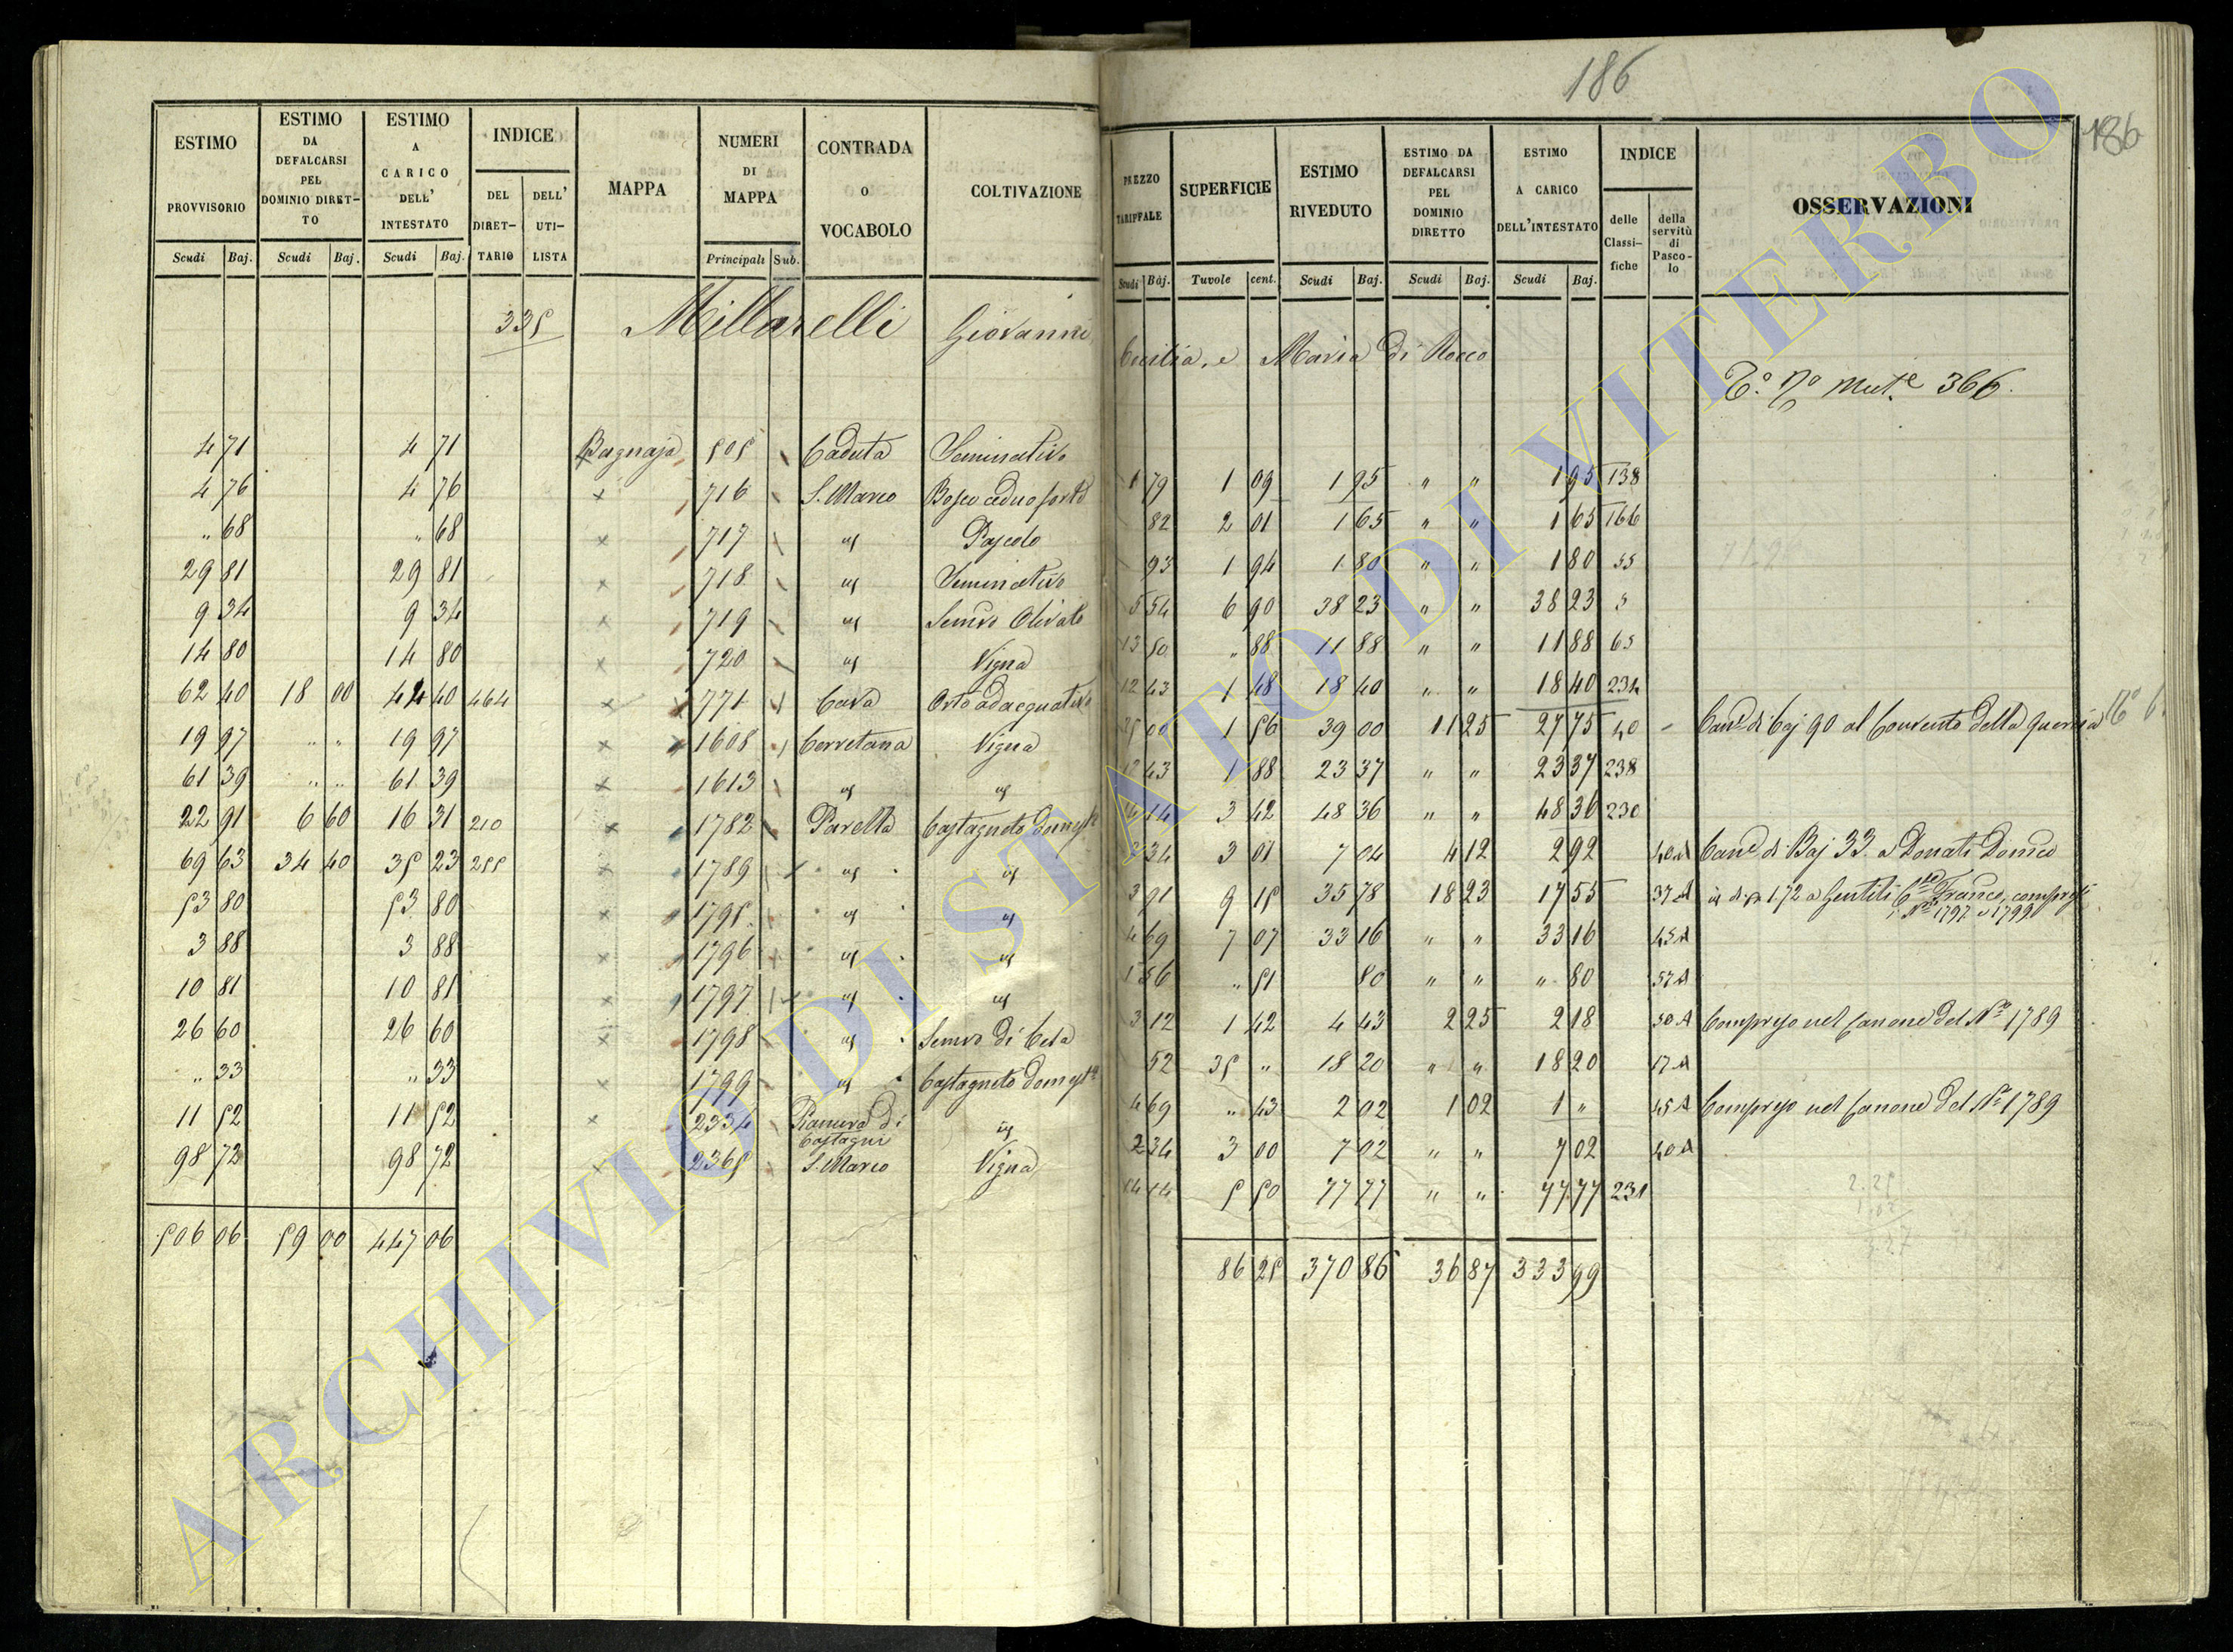 186
186
ESTIMO PROVVISORIO Scudi Baj.
ESTIMO DA DEFALCARSI PEL DOMINIO DIRET-TO Scudi Baj.
ESTIMO A CARICO DELL' INTESTATO Scudi Baj.
INDICE DEL DIRET-TARIO DELL' UTI-LISTA
MAPPA
NUMERI DI MAPPA Principali Sub.
CONTRADA o VOCABOLO
COLTIVAZIONE
PREZZO TARIFFALE Scudi Baj.
SUPERFICIE Tavole cent.
ESTIMO RIVEDUTO Scudi Baj.
ESTIMO DA DEFALCARSI PEL DOMINIO DIRETTO Scudi Baj.
ESTIMO A CARICO DELL'INTESTATO Scudi Baj.
INDICE delle Classi-fiche della servitù di Pasco-lo
OSSERVAZIONI
335 Millarelli Giovanni, Cecilia, e Maria di Rocco
mut.e 366.
4 71 4 71 Bagnaja 505 Caduta Seminativo 1 79 1 09 1 95 " " 1 95 138
4 76 4 76 × 716 S. Marco Bosco ceduo forte 82 2 01 1 65 " " 1 65 166
" 68 " 68 × 717 id Pascolo 93 1 94 1 80 " " 1 80 55
29 81 29 81 × 718 id Seminativo 5 54 6 90 38 23 " " 38 23 5
9 34 9 34 × 719 id Semivo Olivato 13 50 " 88 11 88 " " 11 88 65
14 80 14 80 × 720 id Vigna 12 43 1 48 18 40 " " 18 40 234
62 40 18 00 44 40 464 × 771 Cava Orto adacquativo 25 00 1 56 39 00 11 25 27 75 40 Cane di Baj 90 al Convento della Quercia
19 97 " " 19 97 × 1608 Cerretana Vigna 12 43 1 88 23 37 " " 23 37 238
61 39 " " 61 39 × 1613 id id 14 14 3 42 48 36 " " 48 36 230
22 91 6 60 16 31 210 × 1782 Pavella Castagneto domest 2 34 3 01 7 04 4 12 2 92 40 A Cane di Baj 33 a Donati Domco
69 63 34 40 35 23 255 × 1789 id id 3 91 9 15 35 78 18 23 17 55 37 A id di 1.72 a Gentili Franco, compresi i Ni 1797 e 1799
53 80 53 80 × 1795 id id 4 69 7 07 33 16 " " 33 16 45 A
3 88 3 88 × 1796 id id 1 56 " 51 80 " " " 80 57 A
10 81 10 81 × 1797 id id 3 12 1 42 4 43 2 25 2 18 50 A Compreso nel Canone del No 1789
26 60 26 60 × 1798 id Semivo di Ceta 52 35 " 18 20 " " 18 20 17 A
" 33 " 33 × 1799 id Castagneto domest 4 69 " 43 2 02 1 02 1 " 45 A Compreso nel Canone del No 1789
11 52 11 52 × 2334 Pianura di Castagni id 2 34 3 00 7 02 " " 7 02 40 A
98 72 98 72 × 2365 S. Marco Vigna 14 14 5 50 77 77 " " 77 77 231
2.25
1.02
3.27
506 06 59 00 447 06 86 25 370 86 36 87 333 99
ARCHIVIO DI STATO DI VITERBO